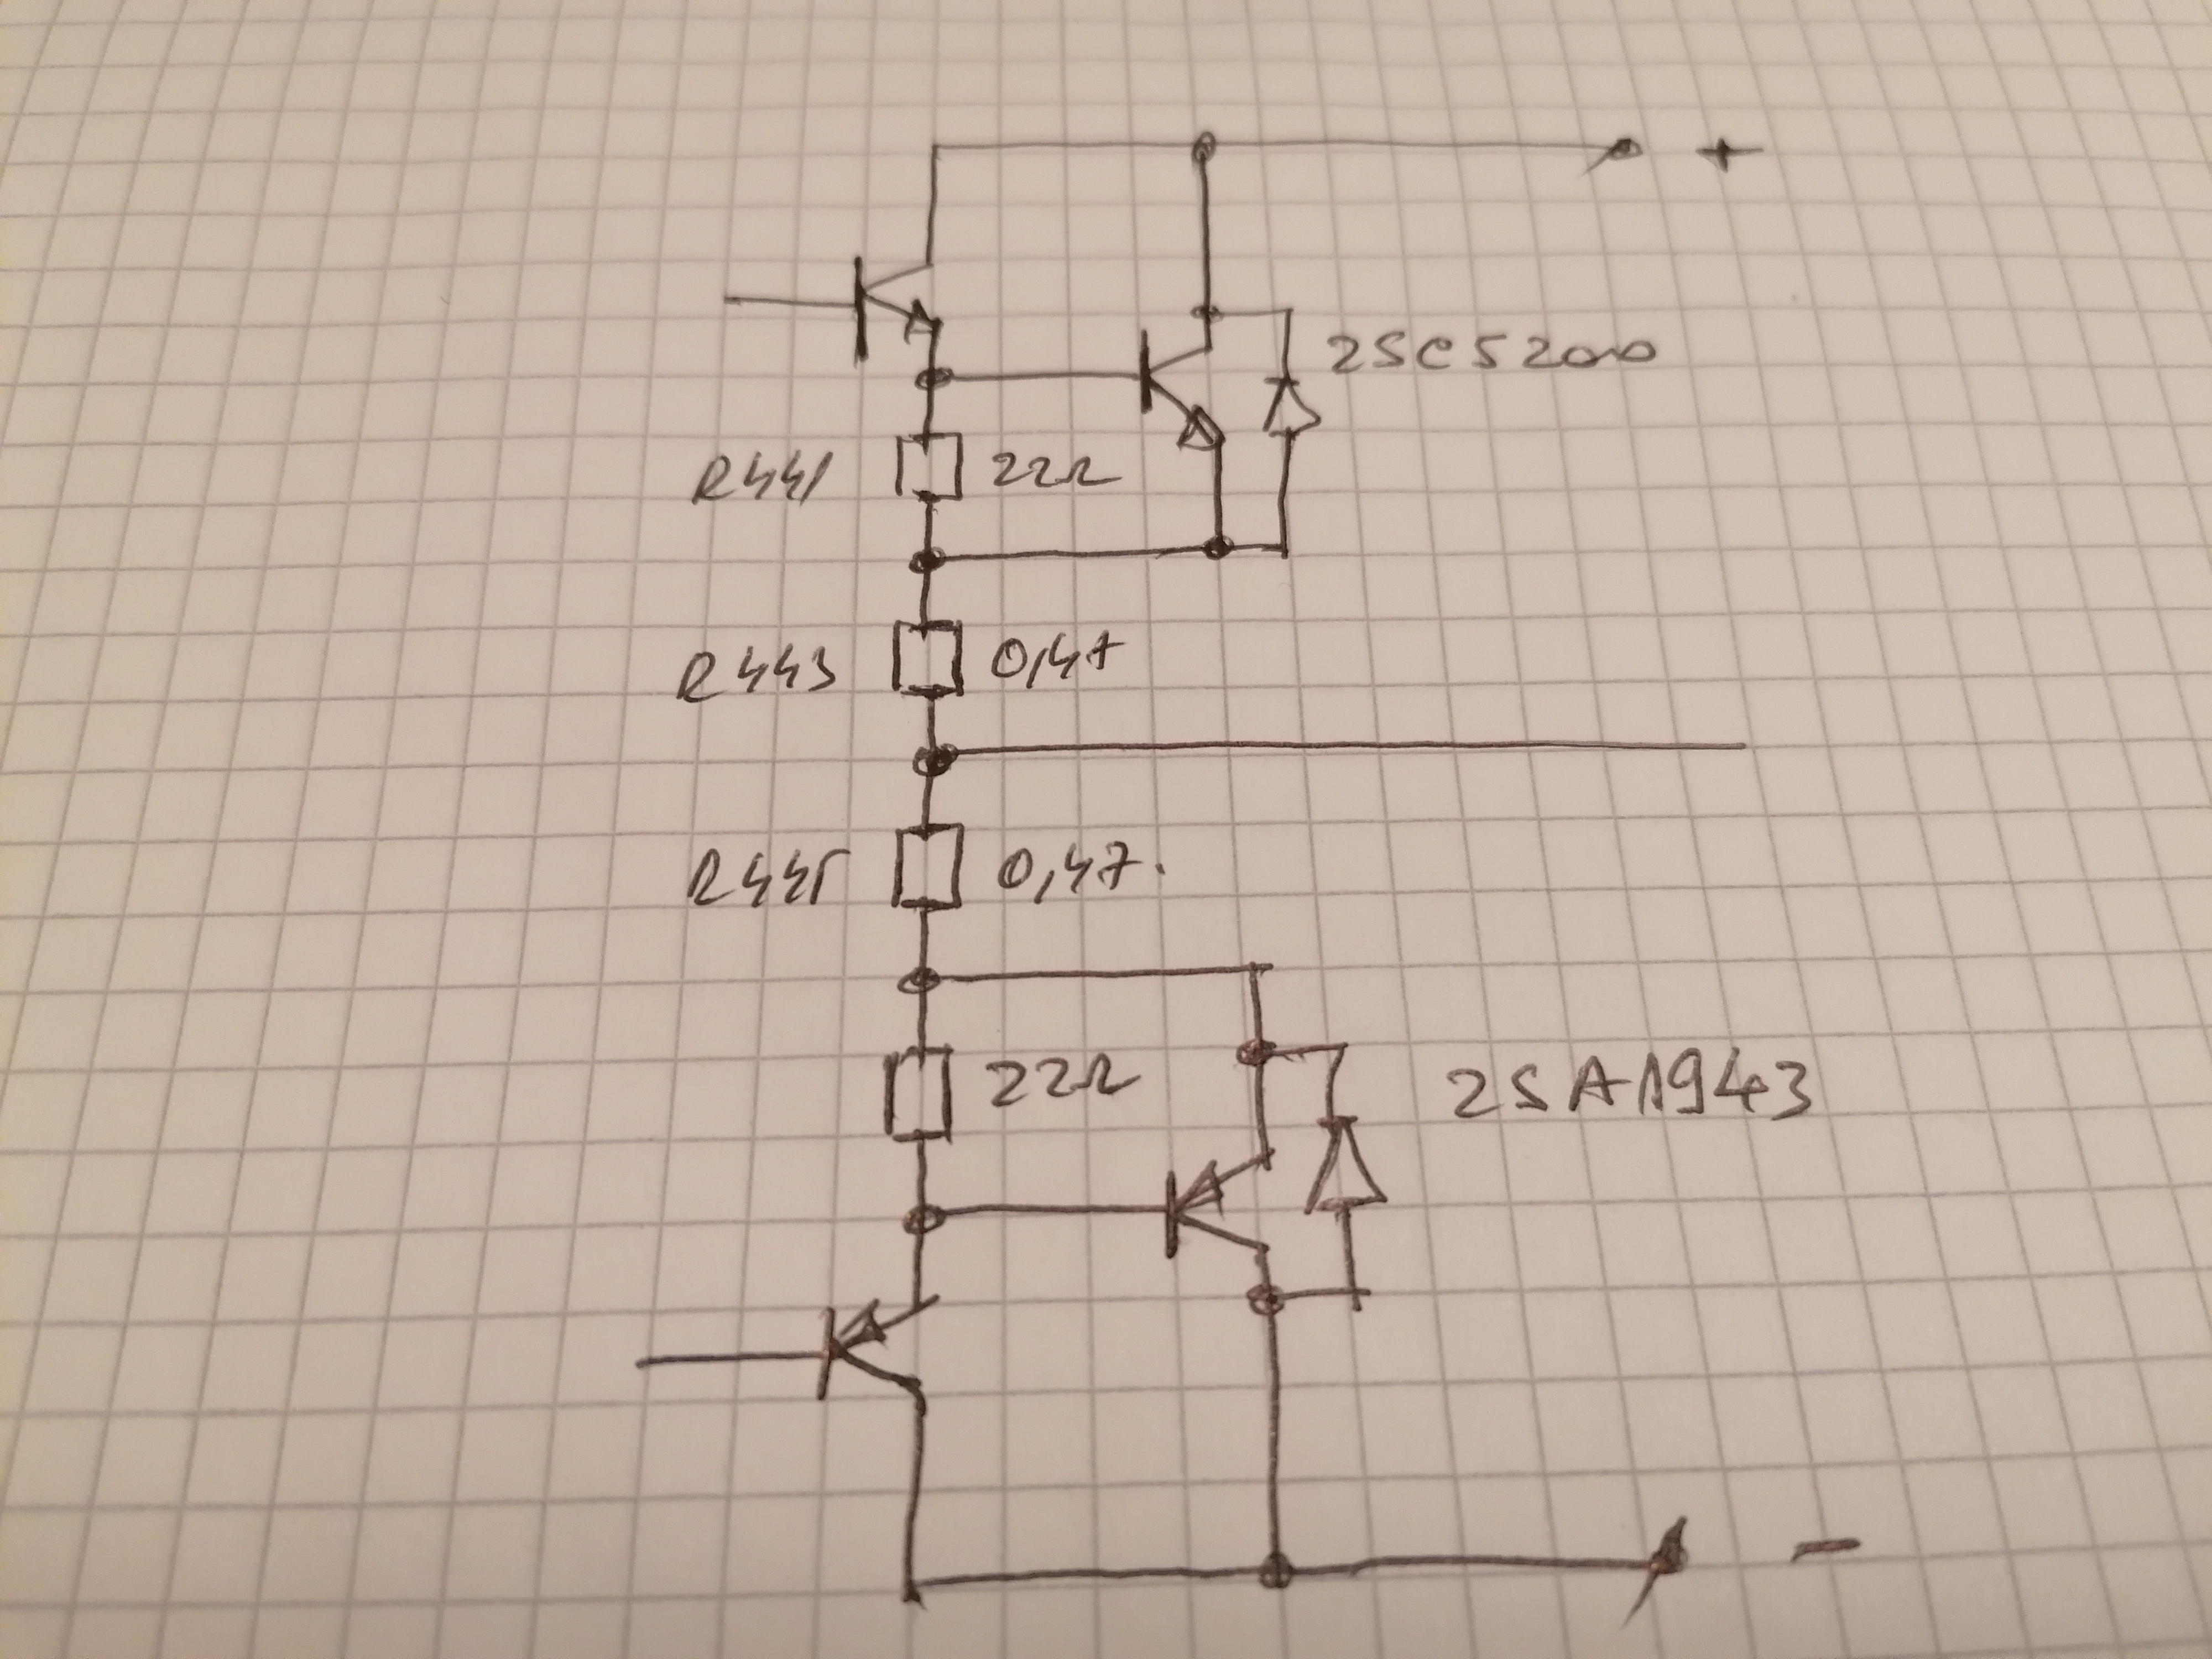 +
2SC5200
R441 22Ω
R443 0,47
R445 0,47.
22Ω
2SA1943
-